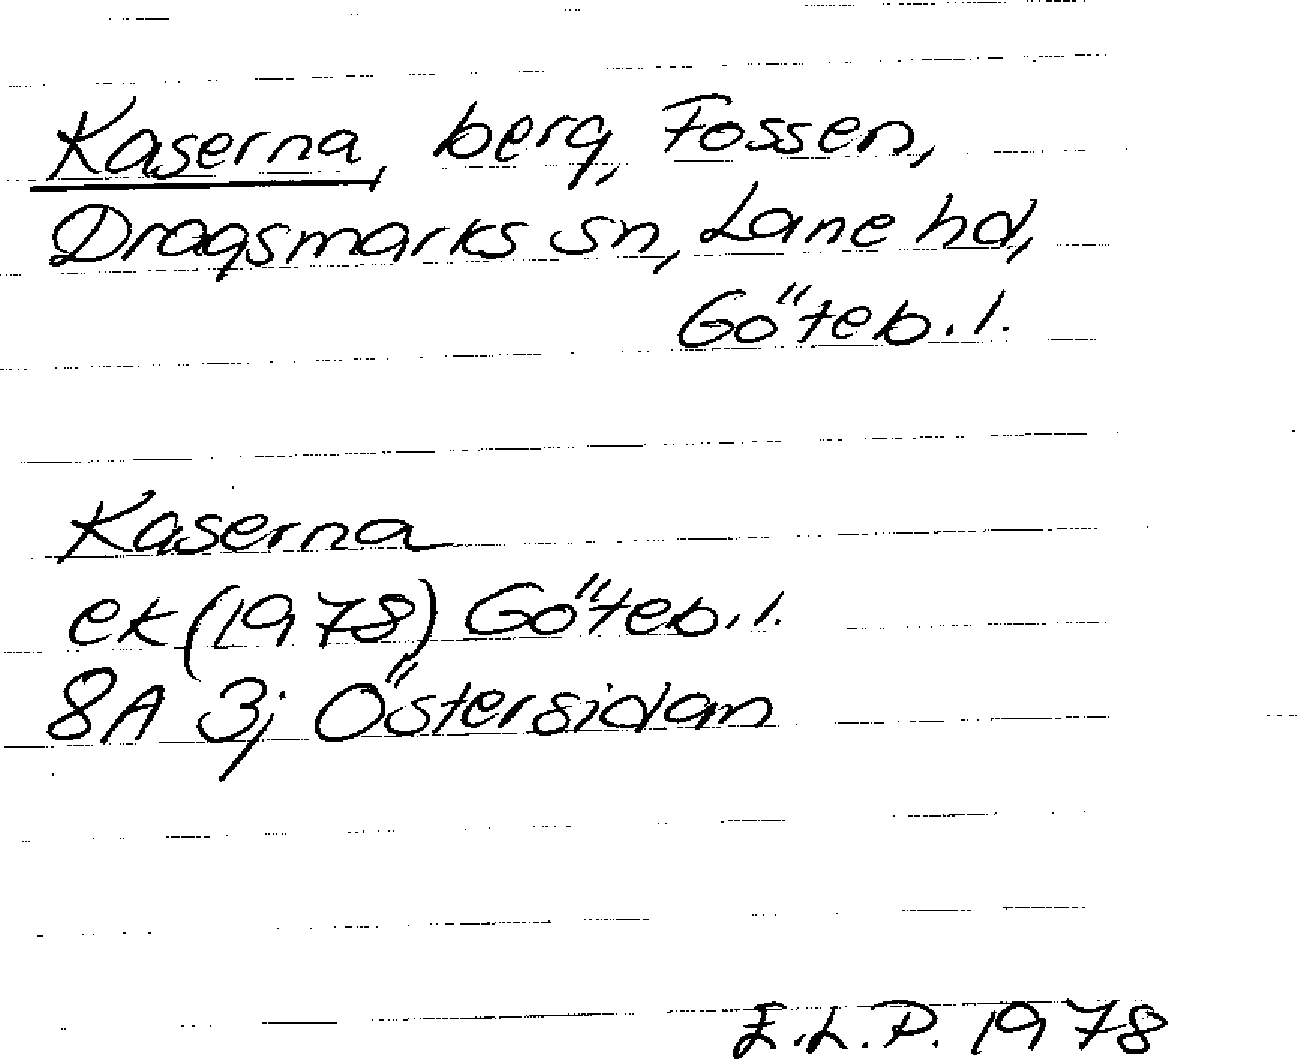 Kaserna, berg, Fossen,
Dragsmarks sn, Lane hd,
Göteb. l.
Kaserna
ek (1978) Göteb. l.
8A 3j Östersidan
E.L.P. 1978